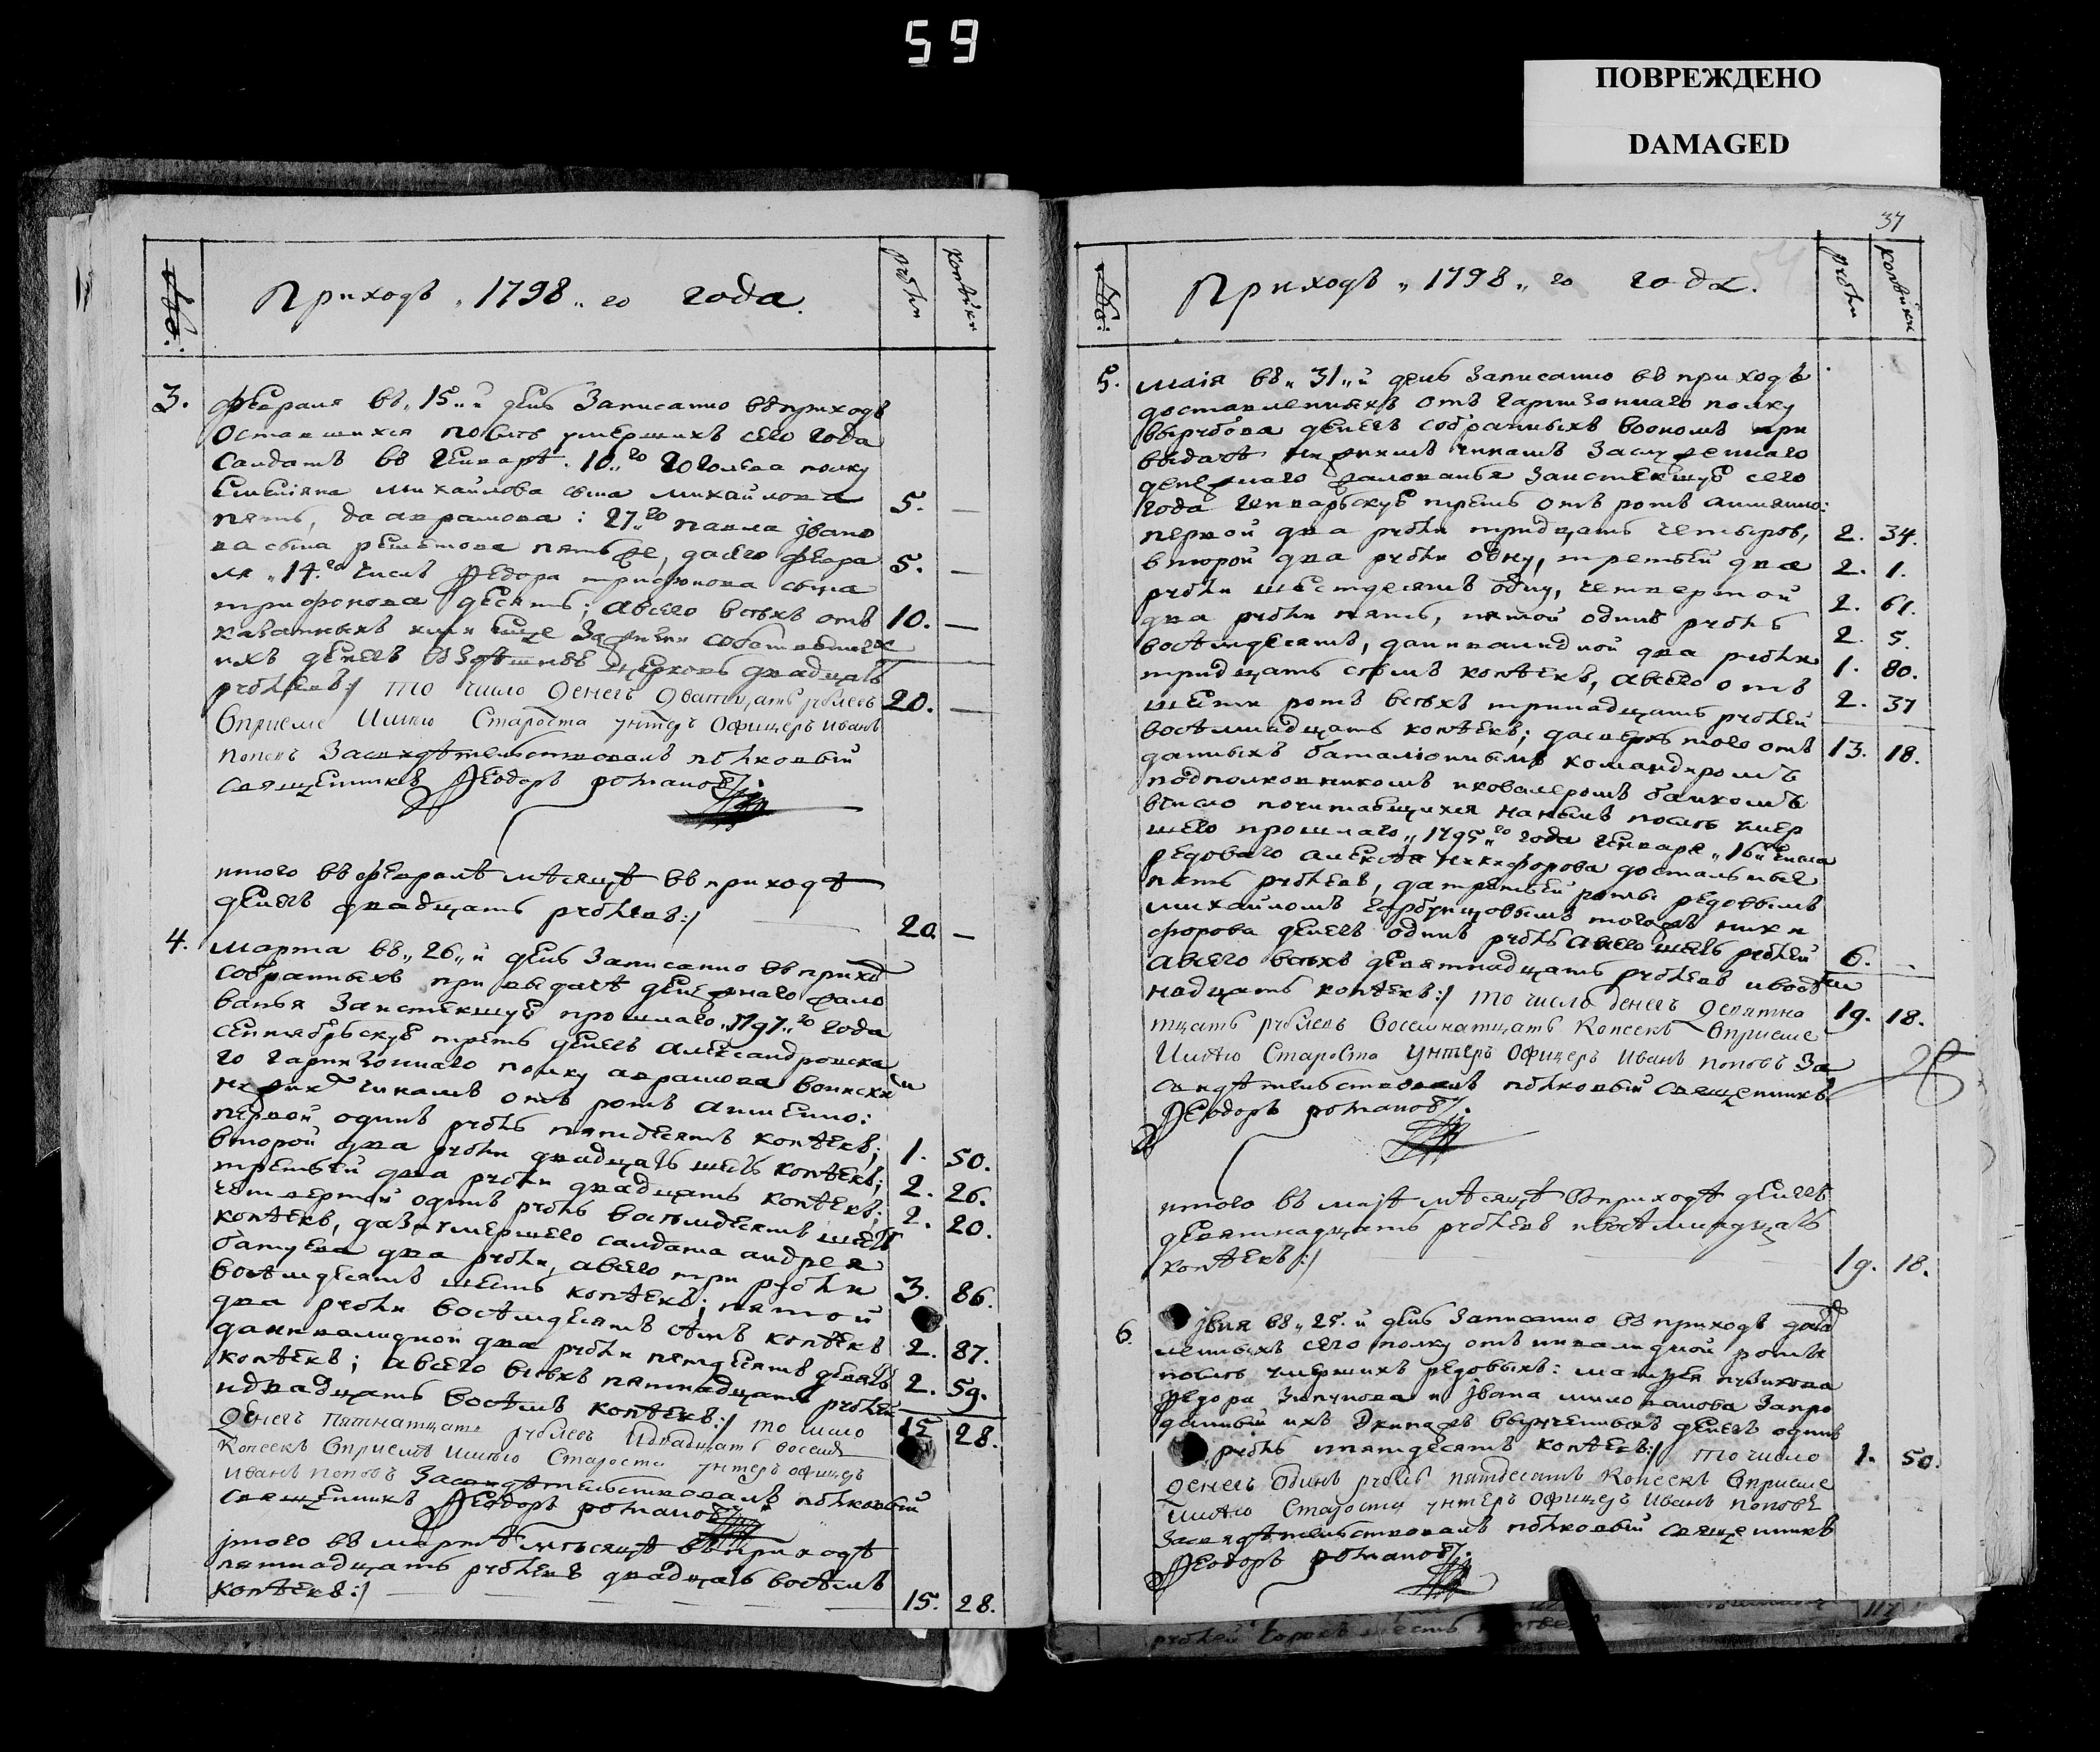 59
ПОВРЕЖДЕНО
DAMAGED
№.
Приходъ „1798„ го года.
рубли
копѣйки
3. февраля въ „15„ й день Записанно въ приходъ
Оставшихся послѣ умершихъ сего года
Салдатъ въ Генварѣ. 10„го Гогольва полку
Емелiяна михайлова сына михайлова
пять, да аврамова: 27„го павла jвано 5. —
ва сына решетова пять же, да сего февра
ля „14.го числъ Федора трифонова сына 5. —
трифонова десять; а всего всѣхъ отъ 10. —
ихъ денегъ въ здѣшнюю церковь двадцать
рублевъ:/ то число денегъ дватцать рублевъ 20. —
Вприеме Имѣю Староста унтеръ Офицеръ иванъ
поповъ Засвидѣтельствовалъ полковый
священникъ Феодоръ романовъ/.
итого въ февралѣ мѣсяцѣ въ приходѣ
денегъ двадцать рублевъ:/ 20. —
4. марта въ „26„ й день Записанно въ приход
собранныхъ при выдачѣ денежнаго жало
ванья Заистекшую прошлаго „1797„го года
сентябрьскую треть денегъ александровска
го гарнизоннаго полку аврамова воински
нижних чинамъ отъ ротъ а имянно:
первой одинъ рубль пятдесятъ копѣекъ; 1. 50.
второй два рубли двадцать шесть копѣекъ; 2. 26.
третьей два рубли двадцать копѣекъ; 2. 20.
четвертой одинъ рубль восѣмдесятъ шесть
копѣекъ, да за умершего салдата андрея
батуева два рубли, а всего три рубли
восѣмдесятъ шесть копѣекъ; пятой 3. 86.
два рубли восѣмдесятъ семъ копѣекъ 2. 87.
да инвалидной два рубли пятдесятъ девять
копѣекъ; а всего всѣхъ пятнадцать рублей 2. 59.
идвадцать восѣмь копѣекъ:/ то число 15 28.
Денегъ пятнатцать рублевъ Идвадцать восемь
Копеекъ Вприемѣ имѣю Староста унтеръ офицеръ
иванъ поповъ Засвидѣтельствовалъ полковый
священникъ Феодоръ романовъ/.
jтого въ мартѣ мѣсяцѣ въ приходѣ
пятнадцать рублевъ двадцать восѣмь
копѣекъ:/ 15. 28.
37
№.
Приходъ „1798„ го года.
рубли
копѣйки
5. маiя въ „31„ й день Записанно въ приходъ
доставленныхъ отъ гарнизоннаго полку
вырубова денегъ собранныхъ воономъ при
выдачѣ нижнимъ чинамъ Заслуженнаго
денежнаго жалованья Заистекшую сего
года генварьскую треть отъ ротъ аимянно:
первой два рубли тридцать четыровъ, 2. 34.
второй два рубли одну, третьей два 2. 1.
рубли шестдесятъ одну, четвертой 2. 61.
два рубли пять, пятой одинъ рубль 2. 5.
восѣмдесятъ, да инвалидной два рубли 1. 80.
тридцать семъ копѣекъ, а всего отъ 2. 37
шести ротъ всѣхъ тринадцать рублей
восѣмнадцать копѣекъ; да сверхъ того отъ 13. 18.
данныхъ баталiоннымъ командиромъ
подполковникомъ икавалеромъ
вчисло почитающихся послѣ умер
шего прошлаго „1795„го года генваря „16„ числа
редоваго алексѣя никифорова достальные
пять рублевъ, да третьей роты редовымъ
михайломъ тогожъ ники
форова денегъ одинъ рубль а всего шесть рублей 6. —
а всего всѣхъ девятнадцать рублевъ ивосѣм
надцать копѣекъ:/ то число денегъ девятна 19. 18.
тцать рублевъ восемнатцать Копеекъ Вприеме
Имѣю Староста Унтеръ Офицеръ Иванъ поповъ За
свидѣтельствовалъ полковый священникъ
Феодоръ романовъ/.
итого въ маjѣ мѣсяцѣ въ приходѣ денегъ
девятнадцать рублевъ ивосѣмнадцать
копѣекъ:/ 19. 18.
6. jюня въ „25„ й день Записанно въ приходъ
сего полку отъ инвалидной роты
послѣ умершихъ редовыхъ: матвея пузикова
Федора Зипунова и jвана Запро
данный ихъ Экипажъ вырученныхъ денегъ одинъ
рубль пятдесятъ копѣекъ:/ то число 1. 50.
денегъ Одинъ рубль пятдесатъ Копеекъ Вприеме
имѣю Староста унтеръ Офицеръ Иванъ поповъ
Засвидѣтельствовалъ полковый священникъ
Феодоръ романовъ/.
рублей Сорокъ шесть